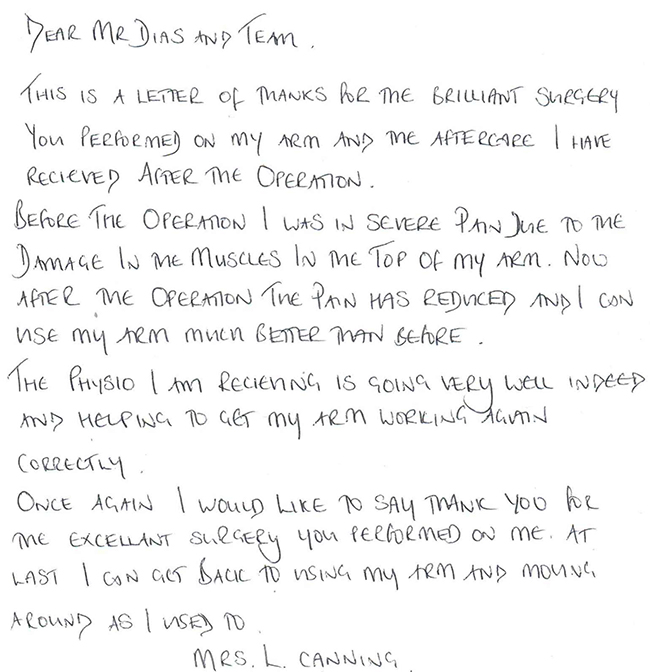 DEAR MR DIAS AND TEAM.
THIS IS A LETTER OF THANKS FOR THE BRILLIANT SURGERY
YOU PERFORMED ON MY ARM AND THE AFTERCARE I HAVE
RECIEVED AFTER THE OPERATION.
BEFORE THE OPERATION I WAS IN SEVERE PAIN DUE TO THE
DAMAGE IN THE MUSCLES IN THE TOP OF MY ARM. NOW
AFTER THE OPERATION THE PAIN HAS REDUCED AND I CAN
USE MY ARM MUCH BETTER THAN BEFORE.
THE PHYSIO I AM RECIEVING IS GOING VERY WELL INDEED
AND HELPING TO GET MY ARM WORKING AGAIN
CORRECTLY.
ONCE AGAIN I WOULD LIKE TO SAY THANK YOU FOR
THE EXCELLANT SURGERY YOU PERFORMED ON ME. AT
LAST I CAN GET BACK TO USING MY ARM AND MOVING
AROUND AS I USED TO.
MRS. L. CANNING.